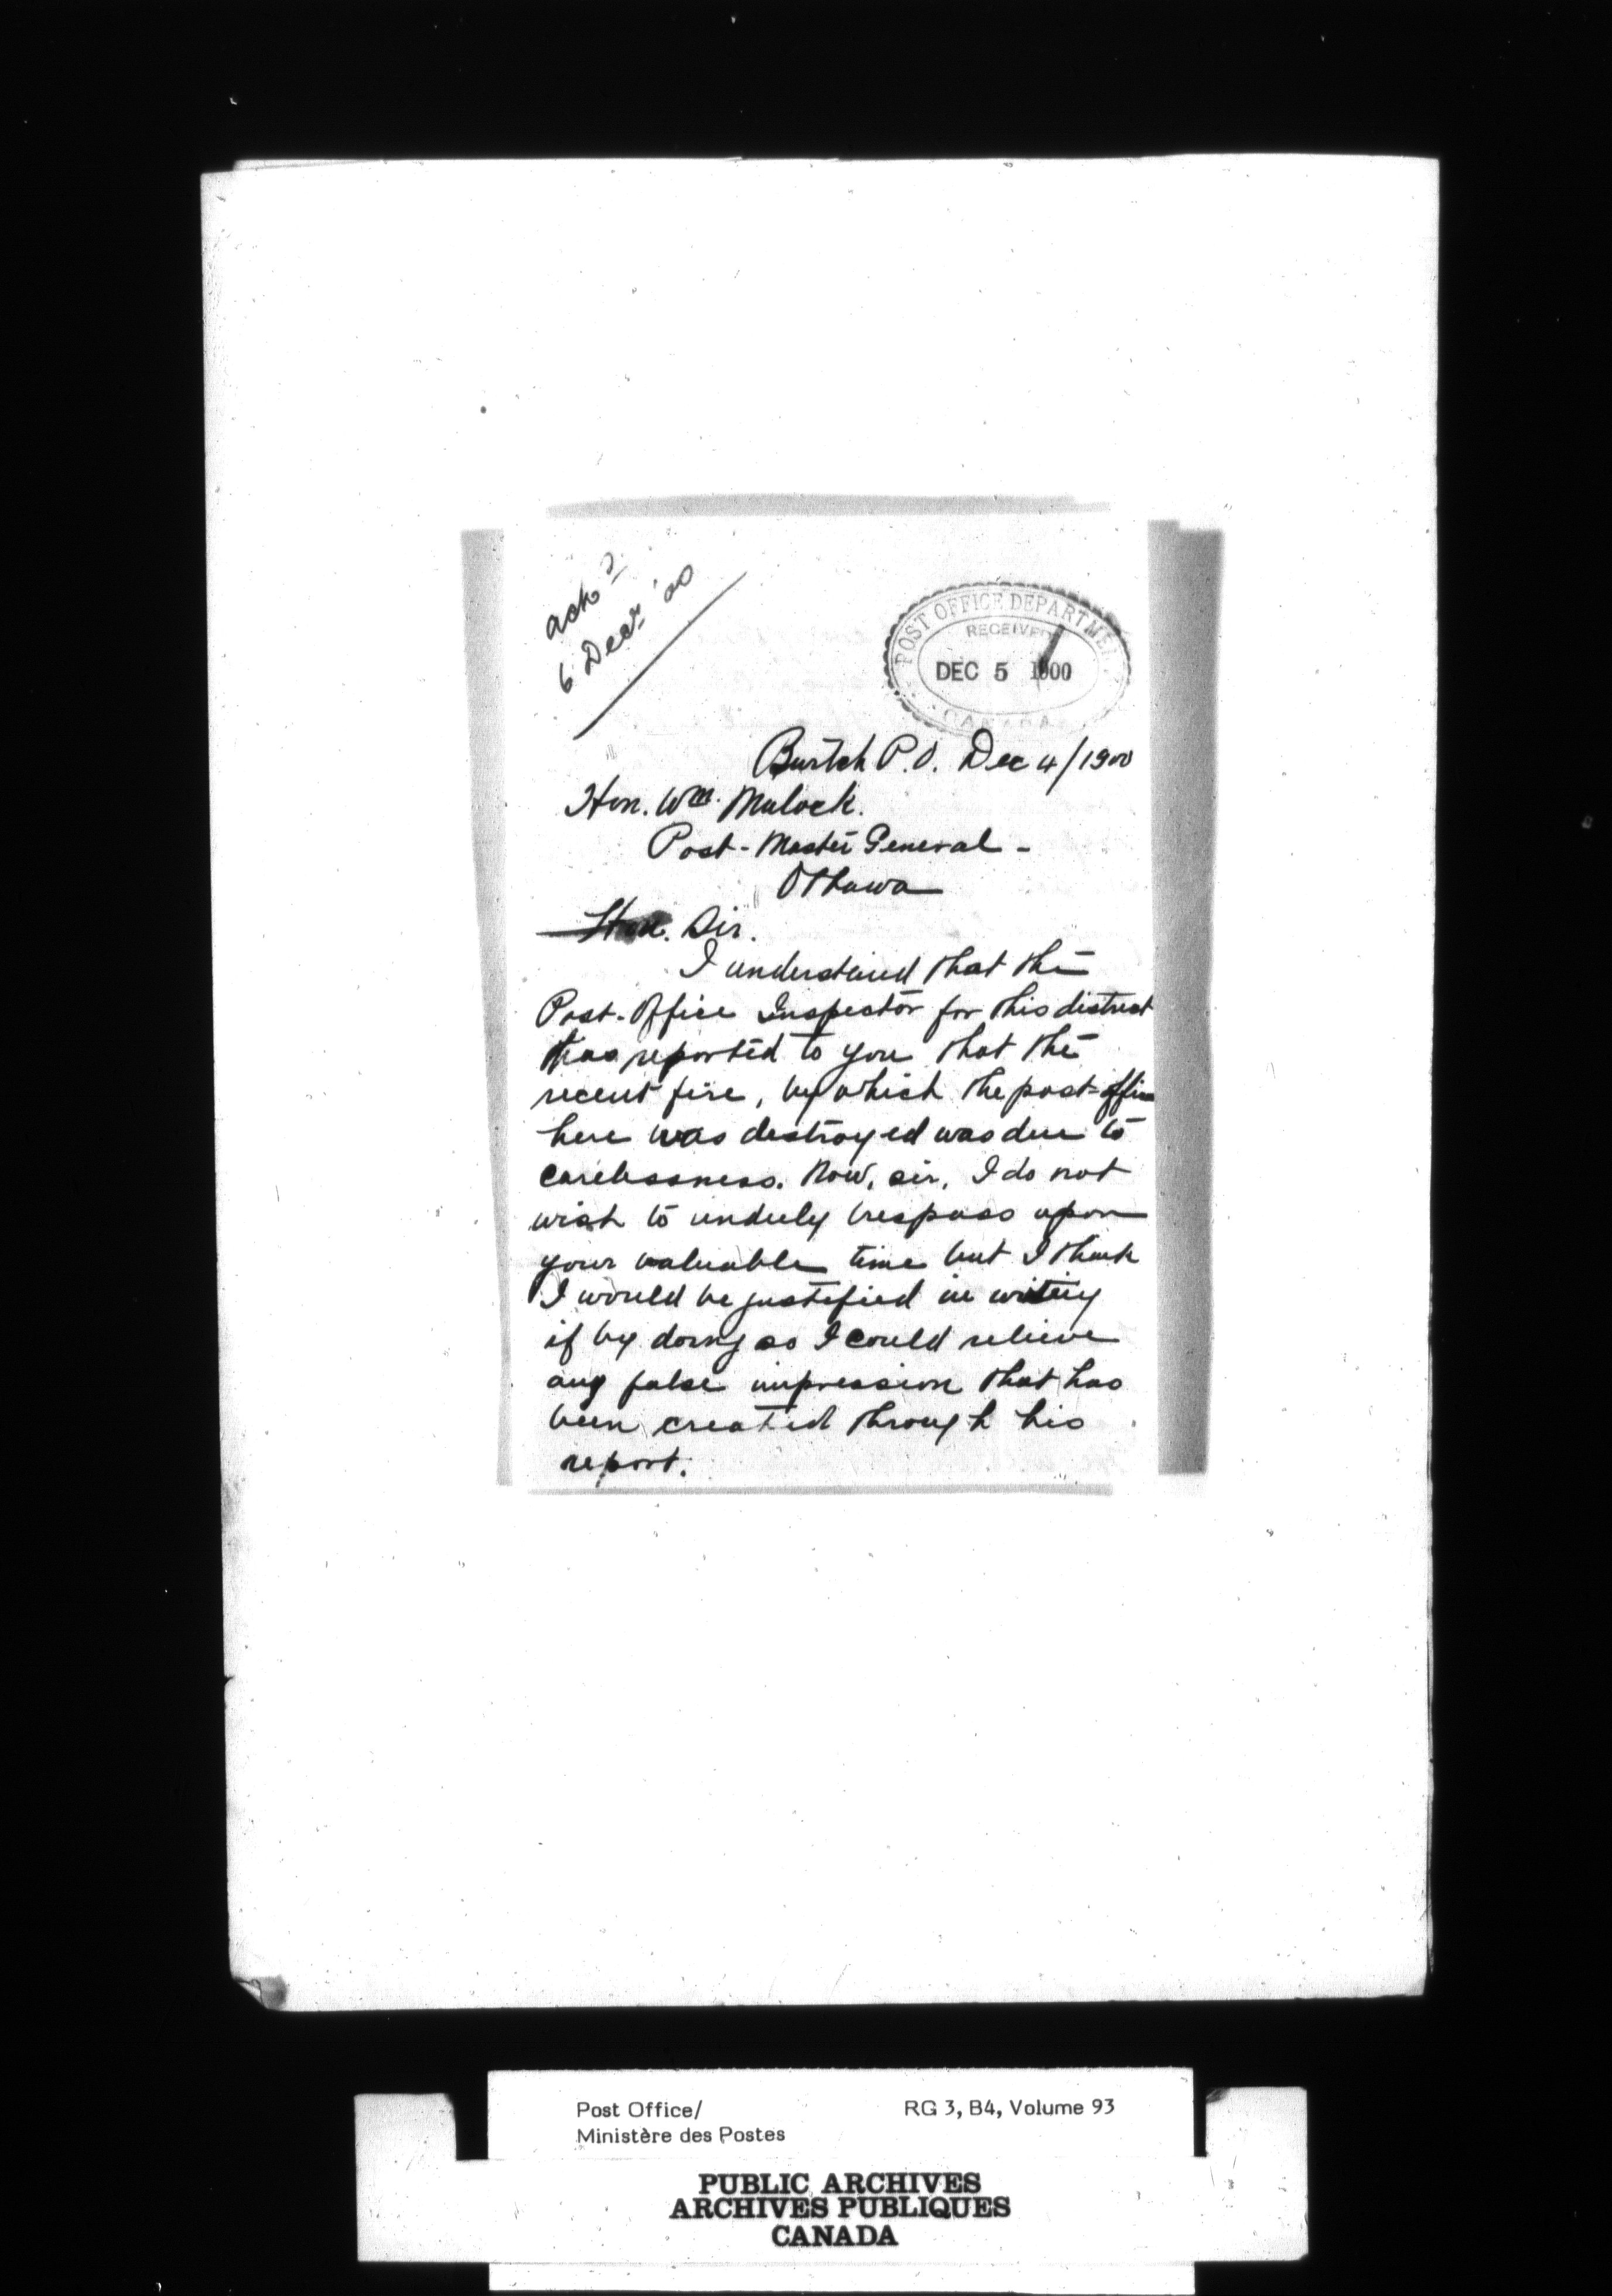 ackd
6 Decr '00
POST OFFICE DEPARTMENT
RECEIVED
DEC 5 1900
CANADA
Burtch P.O. Dec 4/1900
Hon. Wm. Mulock.
Post-Master General -
Ottawa
Hon. Sir.
I understand that the
Post-Office Inspector for this district
has reported to you that the
recent fire, by which the post-office
here was destroyed was due to
carelessness. Now, sir, I do not
wish to unduly trespass upon
your valuable time but I think
I would be justified in writing
if by doing so I could relieve
any false impression that has
been created through his
report.
Post Office/
Ministère des Postes
RG 3, B4, Volume 93
PUBLIC ARCHIVES
ARCHIVES PUBLIQUES
CANADA